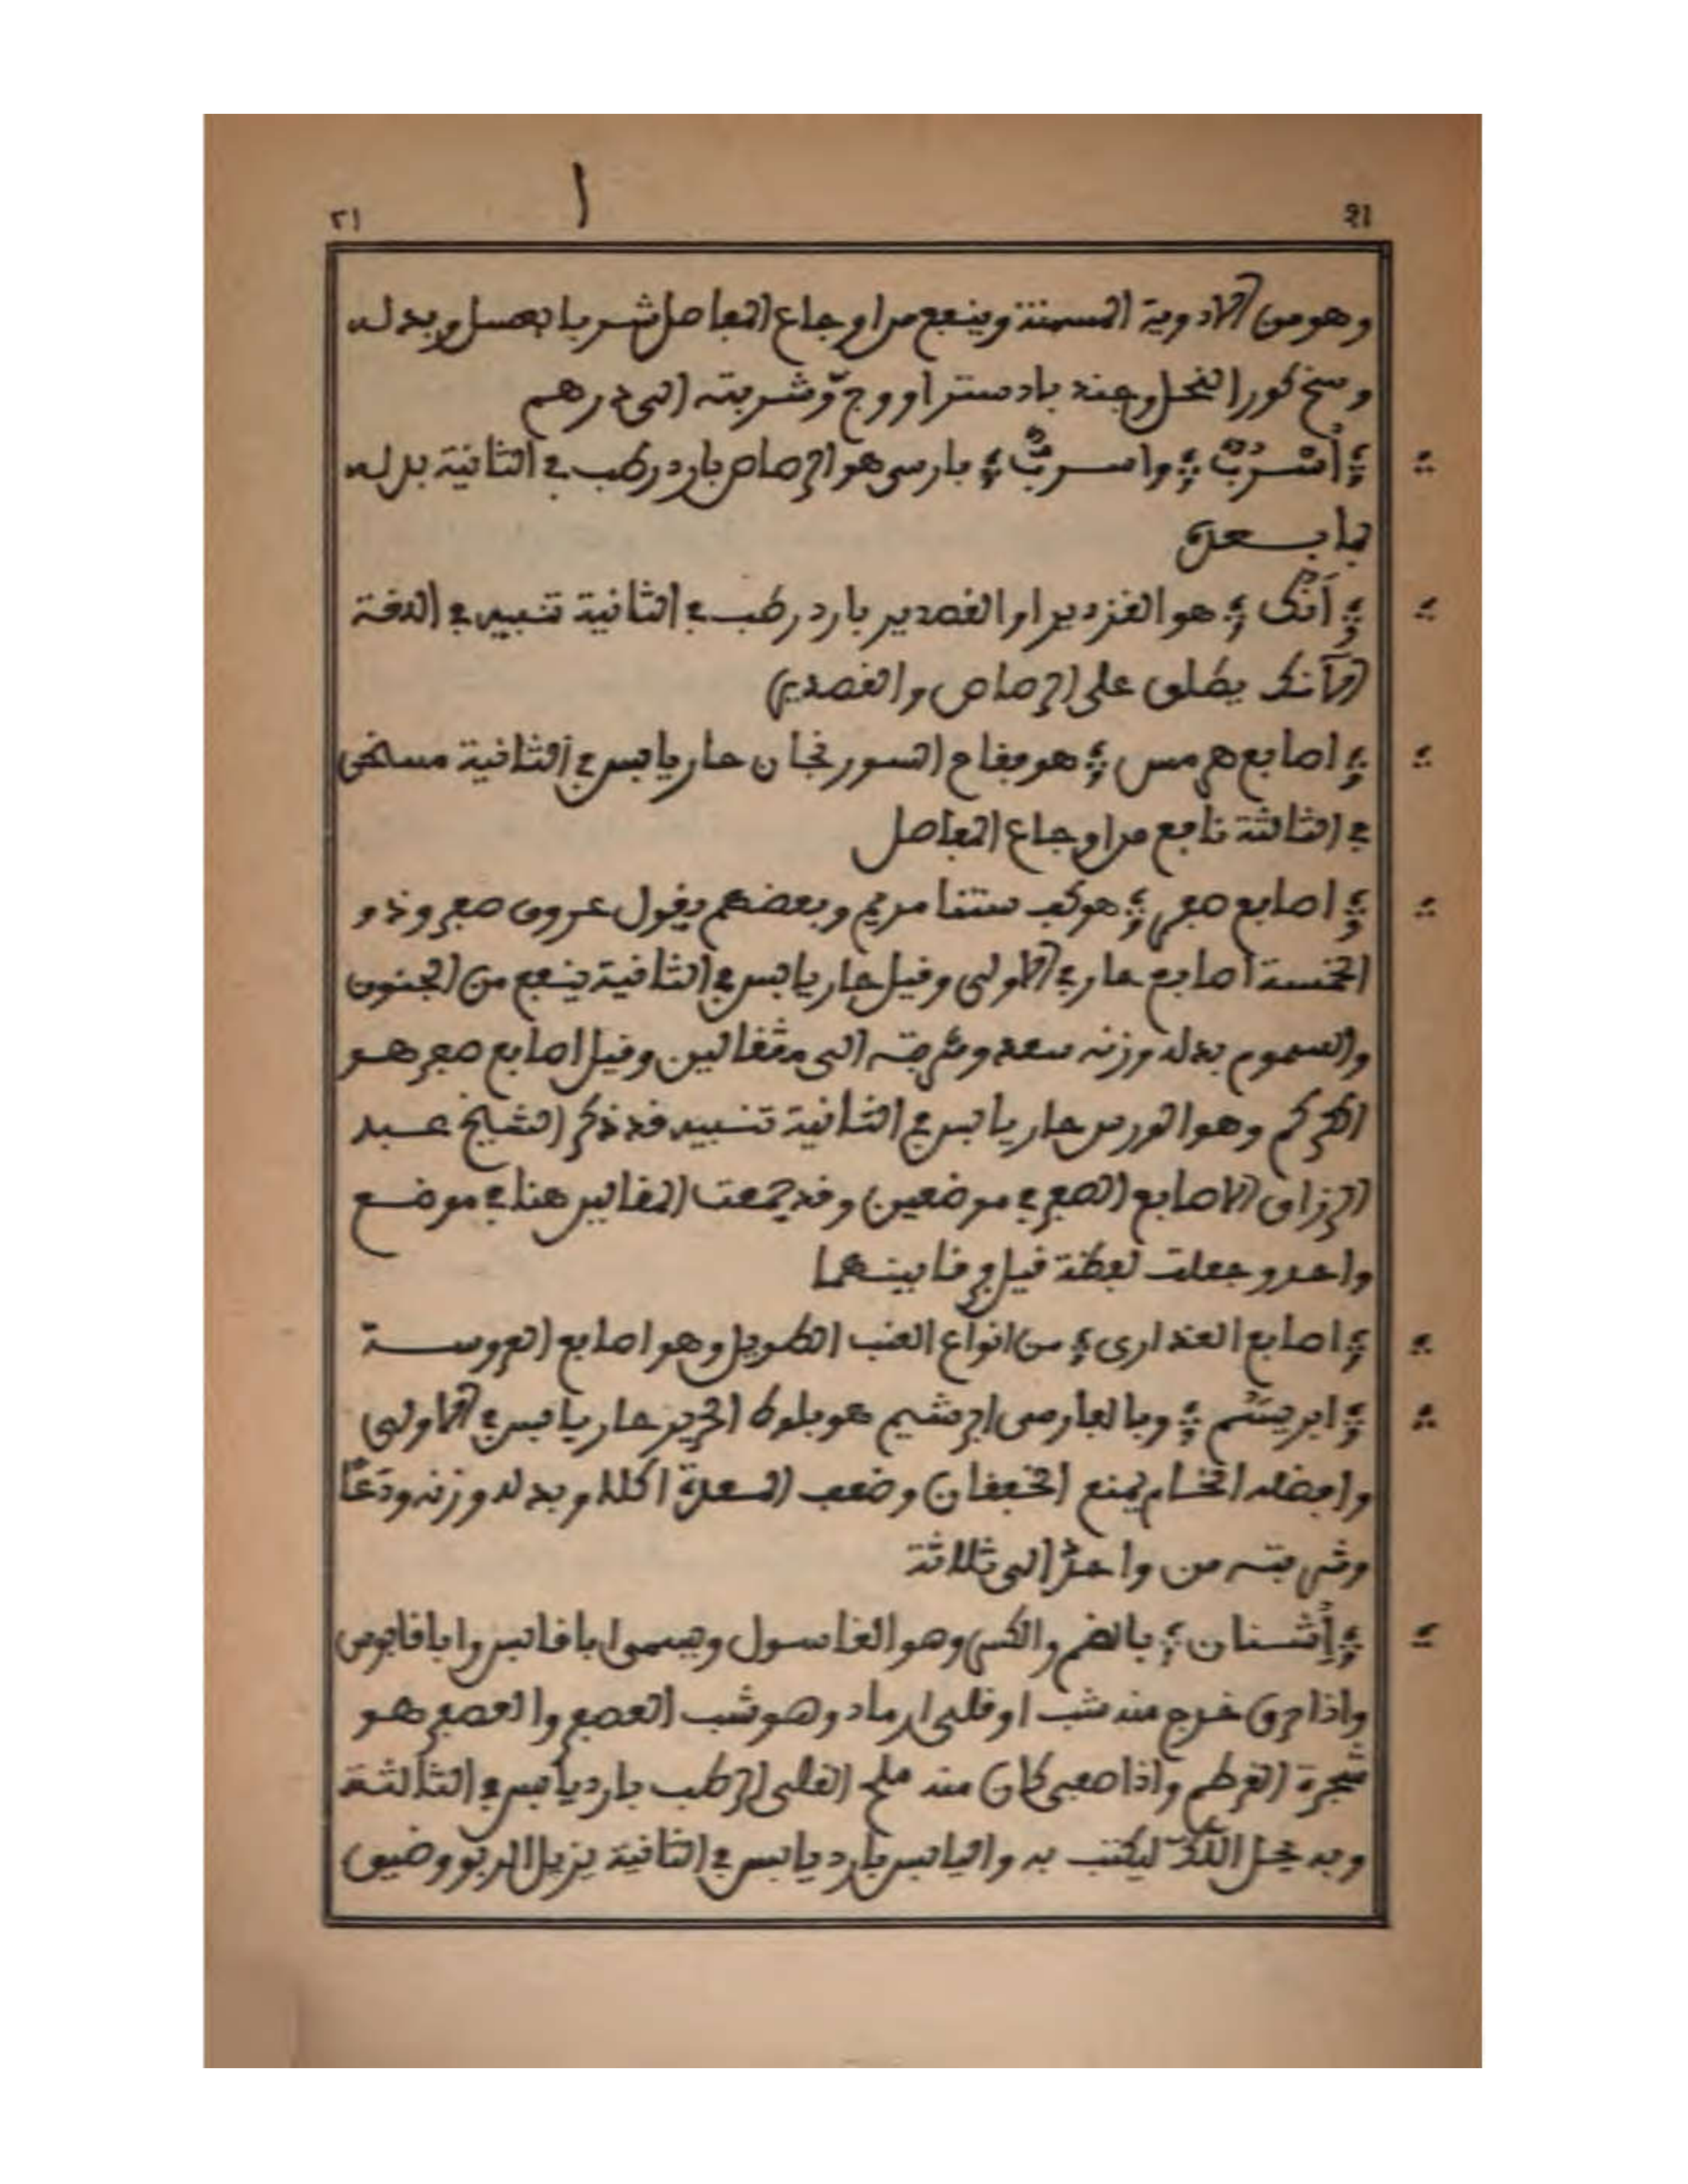 ٢١ ا 21
وهو من الادوية المسمنة وينفع من اوجاع المفاصل شربا بعسل وبدله
وسخ كور النحل وجند بادستر او وج وشربته الى درهم
أسْرُبٌ واسربٌ بارسي هو الرصاص بارد رطب في الثانية بدله
ما بعده
آنُك هو القزدير او القصدير بارد رطب في الثانية تنبيه في اللغة
الآنك يطلق على الرصاص والقصدير)
اصابع هرمس هو فقاح السورنجان حار يابس في الثانية مسخن
في الثالثة نافع من اوجاع المفاصل
اصابع صفر هو كف ستنا مريم وبعضهم يقول عروق صفر وذو
الخمسة اصابع حار في الاولى وقيل حار يابس في الثانية ينفع من الجنون
والسموم بدله وزنه سعد وشربته الى مثقالين وقيل اصابع صفر هو
الكركم وهو الورس حار يابس في الثانية تنبيه قد ذكر الشيخ عبد
الرزاق الاصابع الصفر في موضعين) وقد جمعت المقالين هنا في موضع
واحد وجعلت لفظة قيل فرقا بينهما
اصابع العذارى من انواع العنب الطويل وهو اصابع العروسة
ابريسَم وبالفارسي ابرشيم هو بلوط الحرير حار يابس في الاولى
وافضله الخام يمنع الخفقان وضعف المعدة اكلا وبدله وزنه ودَعًا
وشربته من واحد الى ثلاثة
أشنان بالضم والكسر وهو الغاسول ويسمى ابا قانس وابا قابوس
واذا حرق خرج منه شب او قلى ارماد وهو شب العصفر والعصفر هو
شجرة القرطم واذا صفي كان منه ملح القلى الرطب بارد يابس في الثالثة
وبه يحل اللك ليكتب به واليابس بارد يابس في الثانية يزيل الربو وضيق